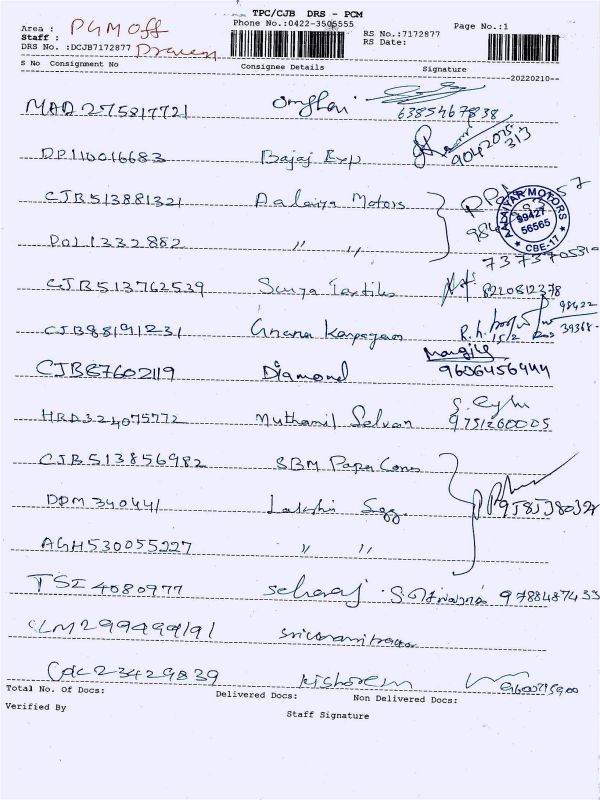 TPC/CJB DRS - PCM
Phone No.:0422-3505555
Page No.:1
Area : PGM Off
Staff :
RS No.:7172877
RS Date:
DRS No. :DCJB7172877
S No Consignment No Consignee Details Signature
20220210
MAD 275817721 6385467838
DP110016683 Bajaj Exp 9042075
313
CJB513881321 Aalaiya Motors
AALAIYAR MOTORS
99427
56565
* CBE-17 *
DOL1332882 〃 〃
7373705310
CJB513762539 Surya Textiles 8220812378
CJB88191231 Gnana Karpagam 98422
15/2 39368
CJB87602119 Diamond 9606456444
HRD324075772 Muthamil Selvan 9751260005
CJB513856982 SBM Paper Cones
DPM340441 Lakshmi Sgg.
AGH530055227 〃 〃
TSI 4080977 Selvaraj 9788487433
CLM299499191
COK23429839 Kishorem
Total No. Of Docs: Delivered Docs: Non Delivered Docs:
Verified By
Staff Signature